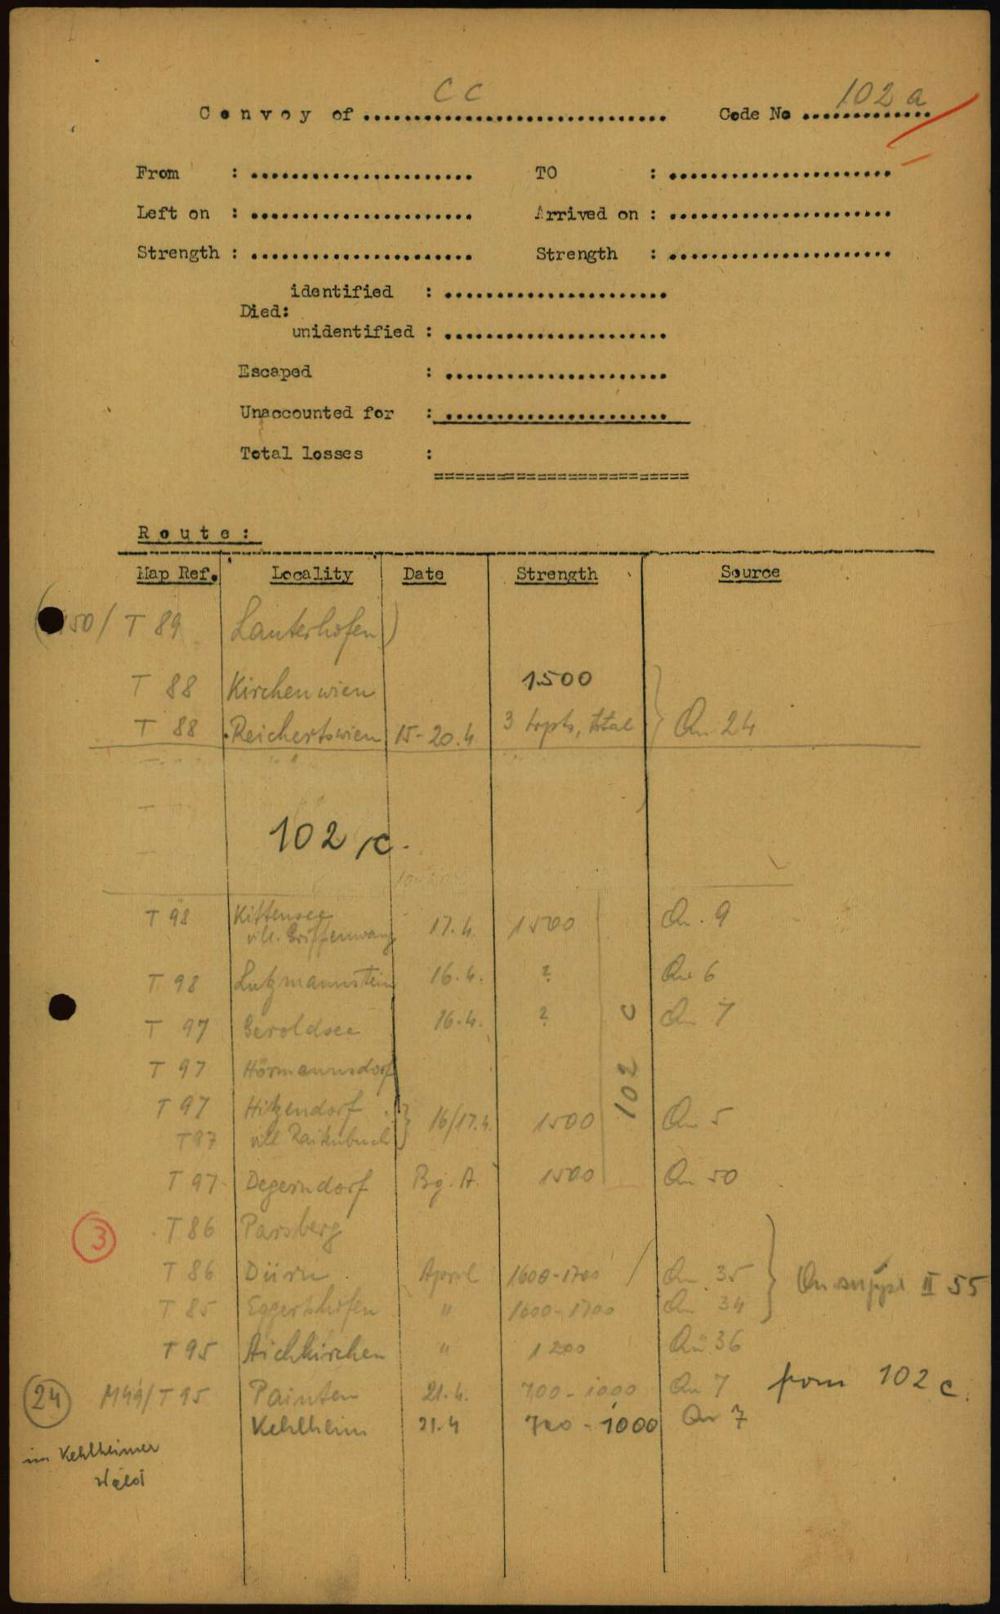 Convoy of CC Code No 102 a
From : TO :
Left on : Arrived on :
Strength : Strength :
identified :
Died:
unidentified :
Escaped :
Unaccounted for :
Total losses :
Route:
Map Ref. Locality Date Strength Source
50/ T 89 Lauterhofen)
T 88 Kirchenwien 1500
T 88 Reichertswien 15-20.4 3 trpts, total Qu 24
102 c.
T 98 Kittensee 17.4. 1500 Qu. 9
vill. Griffenwang
T 98 Lutzmannstein 16.4. ? Qu 6
T 97 Geroldsee 16.4. ? Qu 7
102 c
T 97 Hörmannsdorf
T 97 Hitzendorf 16/17.4. 1500 Qu 5
T 87 vill Raitenbuch
T 97 Degerndorf Bg. A. 1500 Qu 50
3 T 86 Parsberg
T 86 Dürn April 1600-1700 Qu 35 Qu II 55
T 85 Eggertshofen " 1600-1700 Qu 34
T 95 Aichkirchen " 1200 Qu 36
24 M49/T 95 Painten 21.4. 700-1000 Qu 7 from 102 c.
Kehlheim 21.4 700-1000 Qu 7
im Kehlheimer
Wald